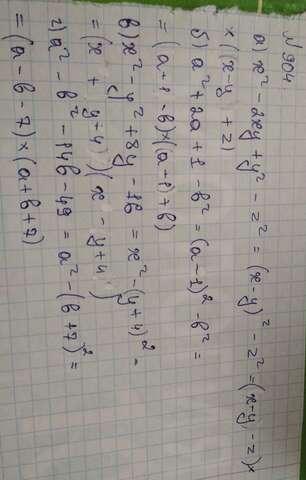 №904
а) x² - 2xy + y² - z² = (x-y)² - z² = (x-y-z)×
×(x-y+z)
б) a² + 2a + 1 - b² = (a-1)² - b² =
= (a+1-b)×(a+1)+b)
в) x² - y² + 8y - 16 = x² - (y+4)² =
= (x + y+4)(x - y+4)
г) a² - b² - 14b - 49 = a² - (b+7)² =
= (a-b-7)×(a+b+7)